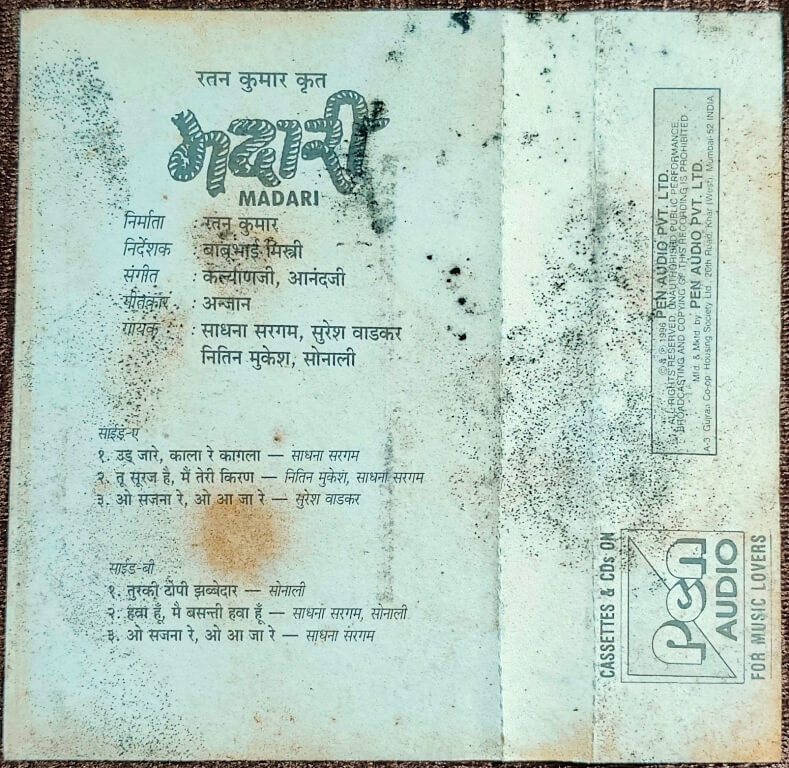 रतन कुमार कृत
मदारी
MADARI
निर्माता : रतन कुमार
निर्देशक : बाबुभाई मिस्त्री
संगीत : कल्याणजी, आनंदजी
गीतकार : अन्जान
गायक : साधना सरगम, सुरेश वाडकर
नितिन मुकेश, सोनाली
साईड-ए
१. उड़ जारे, काला रे कागला — साधना सरगम
२. तू सूरज है, मैं तेरी किरण — नितिन मुकेश, साधना सरगम
३. ओ सजना रे, ओ आ जा रे — सुरेश वाडकर
साईड-बी
१. तुरकी टोपी झब्बेदार — सोनाली
२. हवा हूँ, मै बसन्ती हवा हूँ — साधना सरगम, सोनाली
३. ओ सजना रे, ओ आ जा रे — साधना सरगम
© & ℗ 1996 PEN AUDIO PVT. LTD.
ALL RIGHTS RESERVED. UNAUTHORISED PUBLIC PERFORMANCE,
BROADCASTING AND COPYING OF THIS RECORDING IS PROHIBITED
Mfd. & Mktd. by PEN AUDIO PVT. LTD.
A-3 Gujran Co-op Housing Society Ltd., 20th Road, Khar (West), Mumbai-52 INDIA
CASSETTES & CDs ON
pen
AUDIO
FOR MUSIC LOVERS